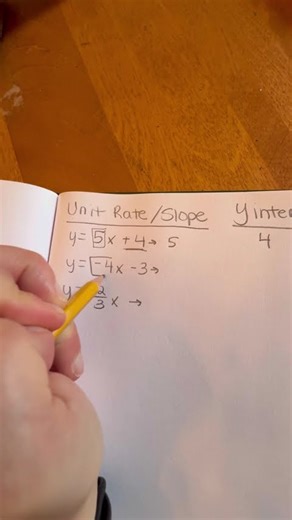 Unit Rate/Slope
y inter
y = 5x + 4 → 5
4
y = -4x - 3 →
y = 2/3 x →